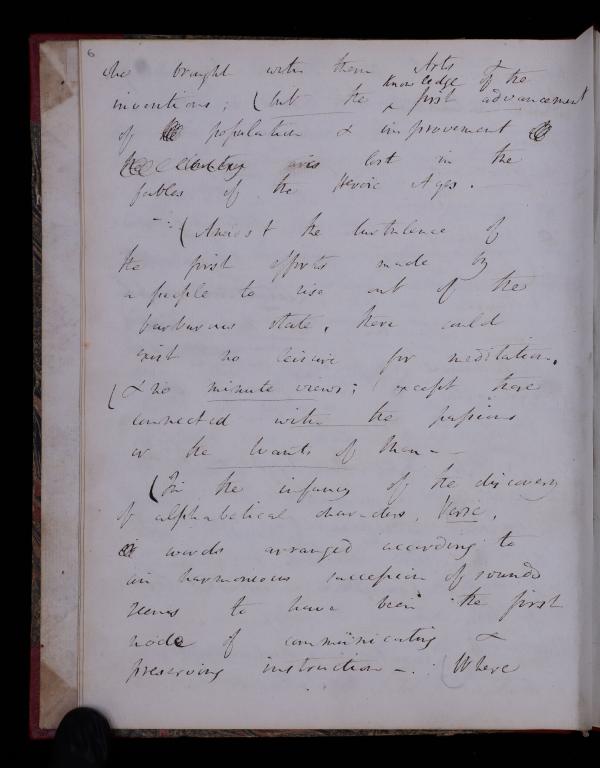 6
who brought with them Arts
Knowledge of the
inventions; (but the first advancement
of population & improvement
lost in the
fables of the Heroic Ages.
(Amidst the turbulence of
the first efforts made by
a people to rise out of the
barbarous state, there could
exist no leisure for meditation.
(& no minute views; except those
connected with the passions
or the wants of Man -
(In the infancy of the discovery
of alphabetical characters, Verse,
words arranged according to
an harmonious succession of sounds
seems to have been the first
mode of communicating &
preserving instruction -. (Where